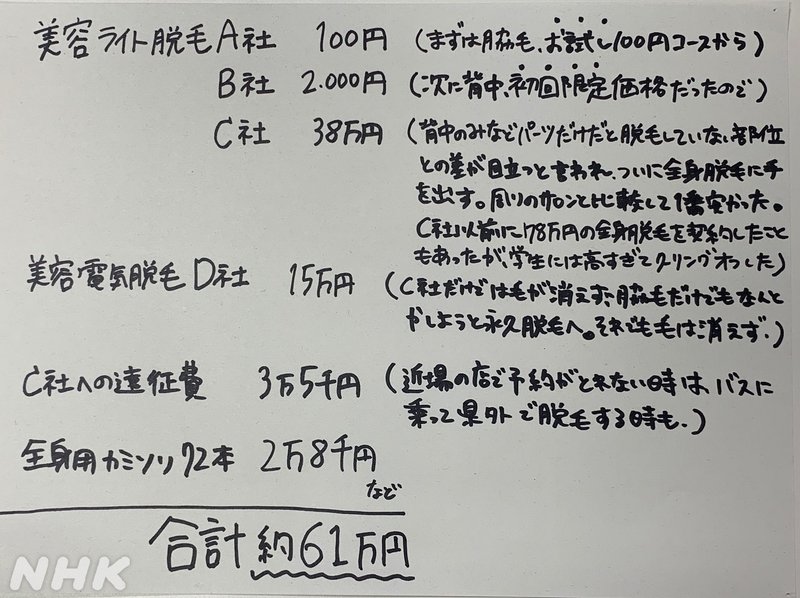 美容ライト脱毛 A社 100円 (まずは脇毛、お試し100円コースから)
B社 2.000円 (次に背中、初回限定価格だったので)
C社 38万円 (背中のみなどパーツだけだと脱毛していない部位
との差が目立つと言われ、ついに全身脱毛に手
を出す。周りのサロンと比較して1番安かった。
C社以前に78万円の全身脱毛を契約したこと
もあったが、学生には高すぎてクーリングオフした)
美容電気脱毛 D社 15万円 (C社だけでは毛が消えず、脇毛だけでもなんと
かしようと永久脱毛へ。それでも毛は消えず.)
C社への遠征費 3万5千円 (近場の店で予約がとれない時は、バスに
乗って県外で脱毛する時も.)
全身用カミソリ72本 2万8千円
など
合計 約61万円
NHK